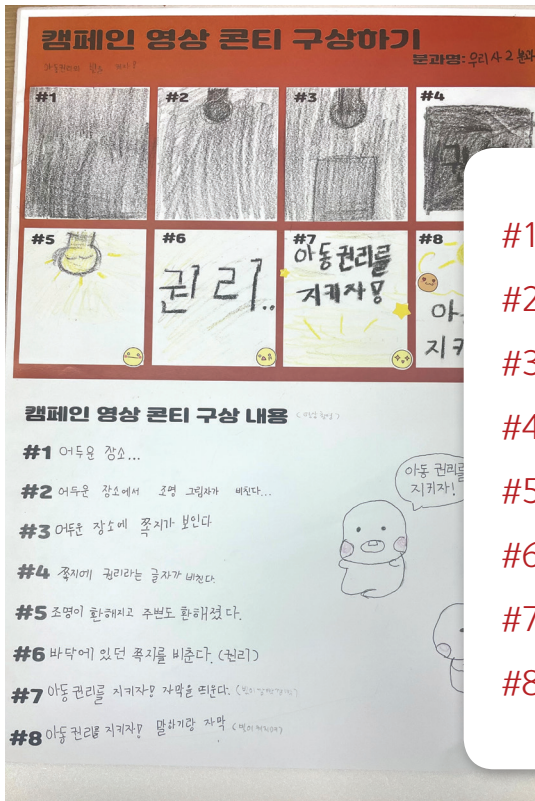 캠페인 영상 콘티 구상하기
분과명: 우리 사 2 분과
#1
#2
#3
#4
#5
#6
권리..
#7
아동권리를
지키자!
#8
아
지키
캠페인 영상 콘티 구상 내용
#1 어두운 장소...
#2 어두운 장소에서 조명 그림자가 비친다...
#3 어두운 장소에 쪽지가 보인다
#4 쪽지에 권리라는 글자가 비친다.
#5 조명이 환해지고 주변도 환해졌다.
#6 바닥에 있던 쪽지를 비춘다. (권리)
#7 아동권리를 지키자! 자막을 띄운다.
#8 아동권리를 지키자! 말하기랑 자막
아동 권리를
지키자!
#1
#2
#3
#4
#5
#6
#7
#8